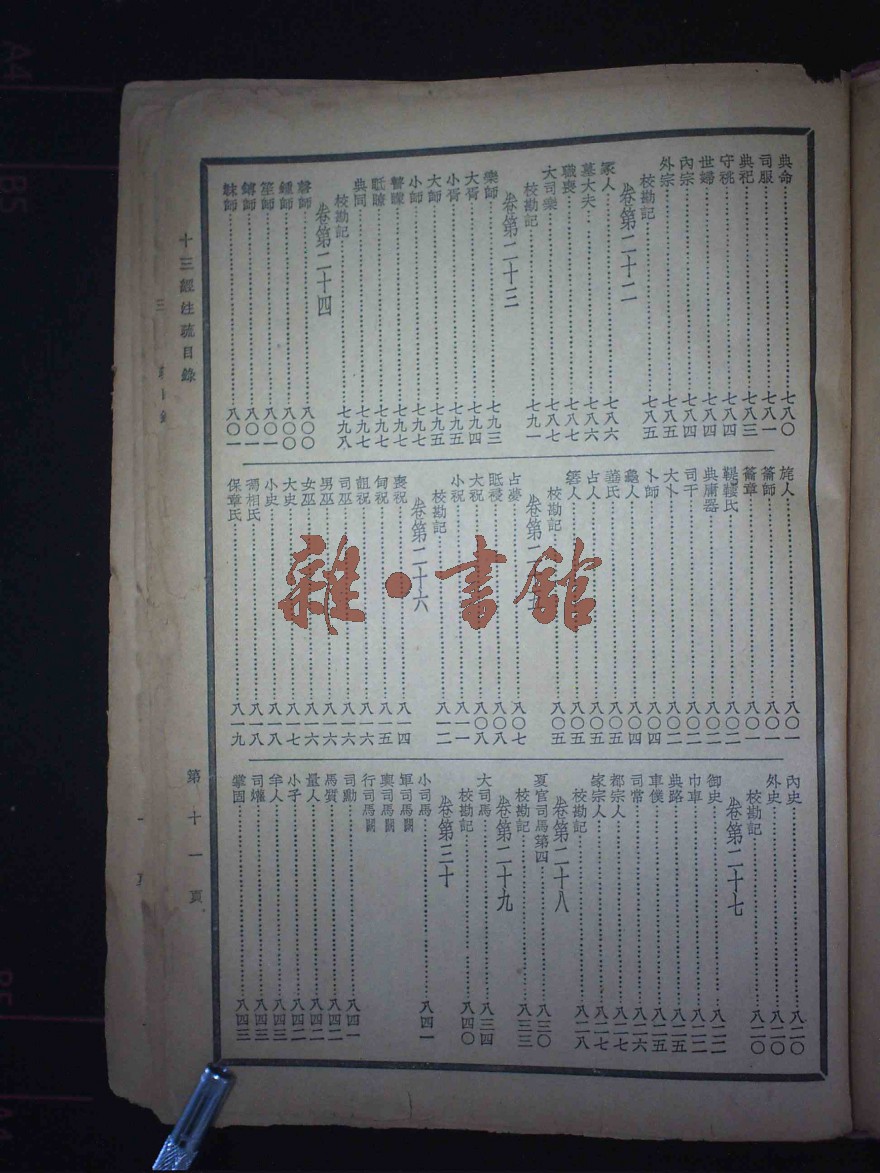 典命……七八〇
司服……七八一
典祀……七八三
守祧……七八四
世婦……七八四
內宗……七八四
外宗……七八五
校勘記……七八五
卷第二十二
冢人……七八六
墓大夫……七八六
職喪……七八七
大司樂……七八七
校勘記……七九一
卷第二十三
樂師……七九三
大胥……七九四
小胥……七九五
大師……七九五
小師……七九七
瞽矇……七九七
眡瞭……七九七
典同……七九七
校勘記……七九八
卷第二十四
磬師……八〇〇
鍾師……八〇〇
笙師……八〇一
鎛師……八〇一
韎師……八〇一
旄人……八〇一
籥師……八〇一
籥章……八〇一
鞮鞻氏……八〇二
典庸器……八〇二
司干……八〇二
大卜……八〇二
卜師……八〇四
龜人……八〇四
菙氏……八〇五
占人……八〇五
簭人……八〇五
校勘記……八〇五
卷第二十五
占夢……八〇七
眡祲……八〇八
大祝……八〇八
小祝……八一一
校勘記……八一二
卷第二十六
喪祝……八一四
甸祝……八一五
詛祝……八一六
司巫……八一六
男巫……八一六
女巫……八一六
大史……八一七
小史……八一八
馮相氏……八一八
保章氏……八一九
內史……八二〇
外史……八二〇
校勘記……八二〇
卷第二十七
御史……八二二
巾車……八二二
典路……八二五
車僕……八二五
司常……八二六
都宗人……八二七
家宗人……八二七
校勘記……八二八
卷第二十八
夏官司馬第四……八三〇
校勘記……八三三
卷第二十九
大司馬……八三四
校勘記……八四〇
卷第三十
小司馬……八四一
軍司馬闕
輿司馬闕
行司馬闕
司勳……八四一
馬質……八四二
量人……八四二
小子……八四二
羊人……八四三
司爟……八四三
掌固……八四三
十三經注疏目錄
第十一頁
雜·書館